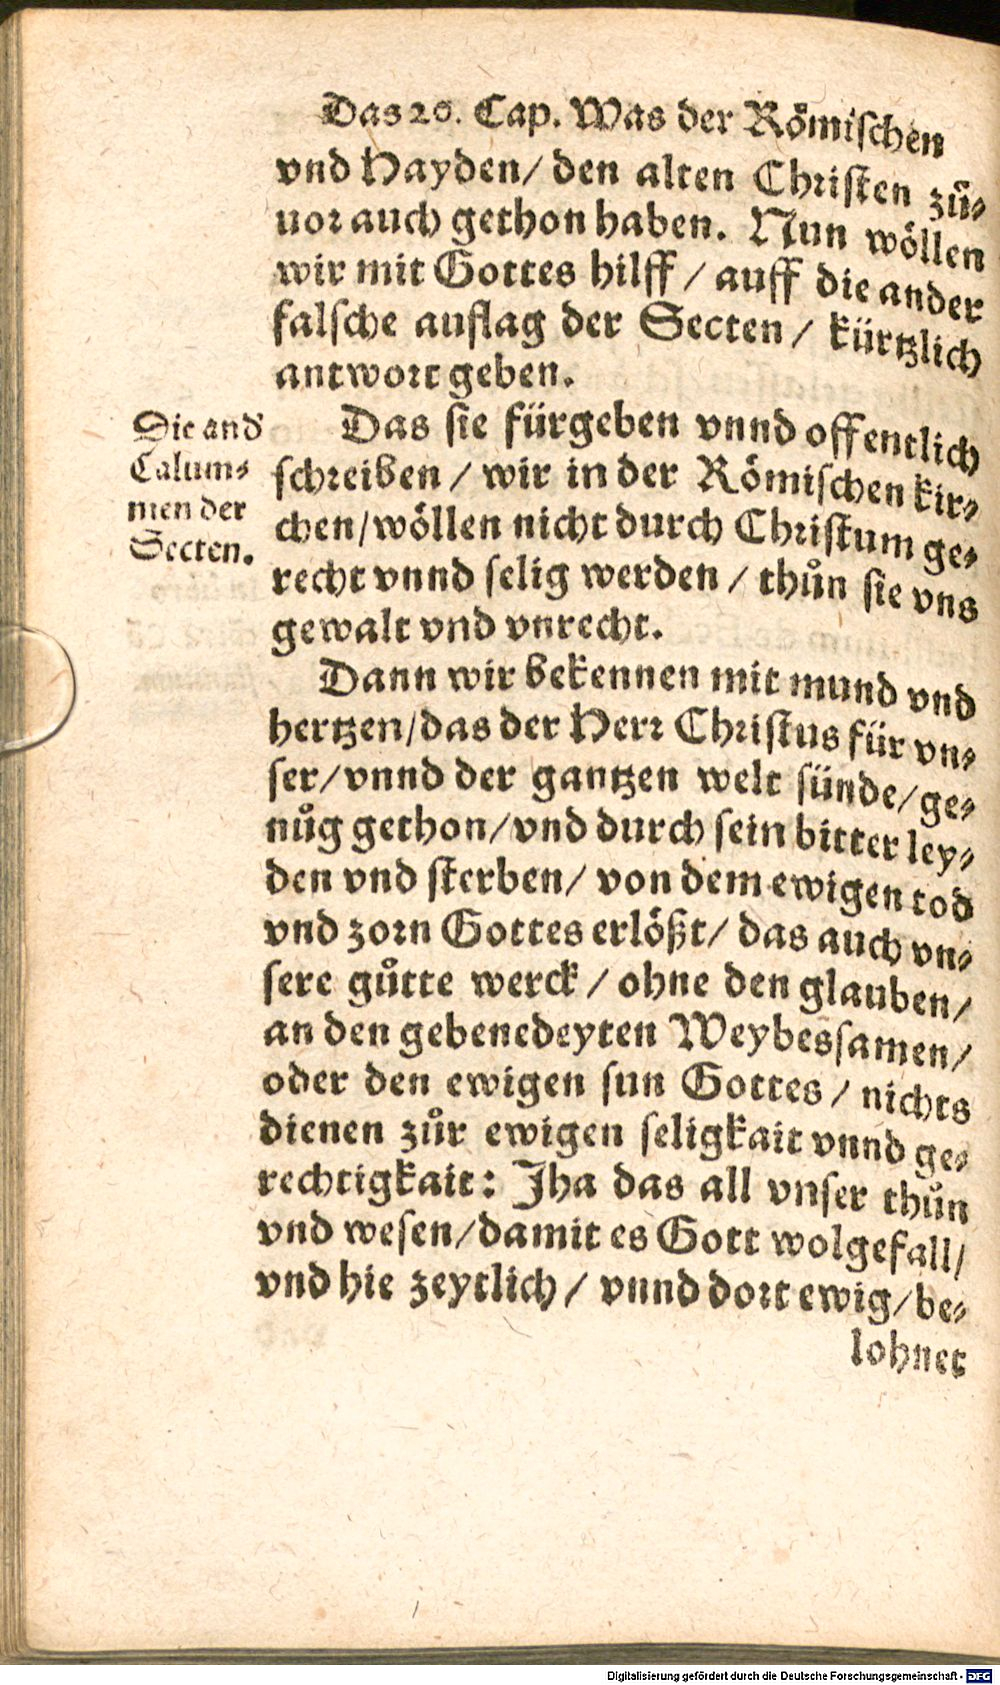 Das 20. Cap. Was der Römischen
vnd Hayden/ den alten Christen zů-
uor auch gethon haben. Nun wöllen
wir mit Gottes hilff / auff die ander
falsche auflag der Secten / kürtzlich
antwort geben.
Die and'
Calum-
nien der
Secten.
Das sie fürgeben vnnd offentlich
schreiben / wir in der Römischen kir-
chen/wöllen nicht durch Christum ge-
recht vnnd selig werden / thůn sie vns
gewalt vnd vnrecht.
Dann wir bekennen mit mund vnd
hertzen/das der Herr Christus für vn-
ser/vnnd der gantzen welt sünde/ge-
nůg gethon/vnd durch sein bitter ley-
den vnd sterben/ von dem ewigen tod
vnd zorn Gottes erlößt/ das auch vn-
sere gůtte werck / ohne den glauben/
an den gebenedeyten Weybessamen/
oder den ewigen sun Gottes / nichts
dienen zůr ewigen seligkait vnnd ge-
rechtigkait: Jha das all vnser thůn
vnd wesen/damit es Gott wolgefall/
vnd hie zeytlich / vnnd dort ewig/be-
lohnet
Digitalisierung gefördert durch die Deutsche Forschungsgemeinschaft - DFG